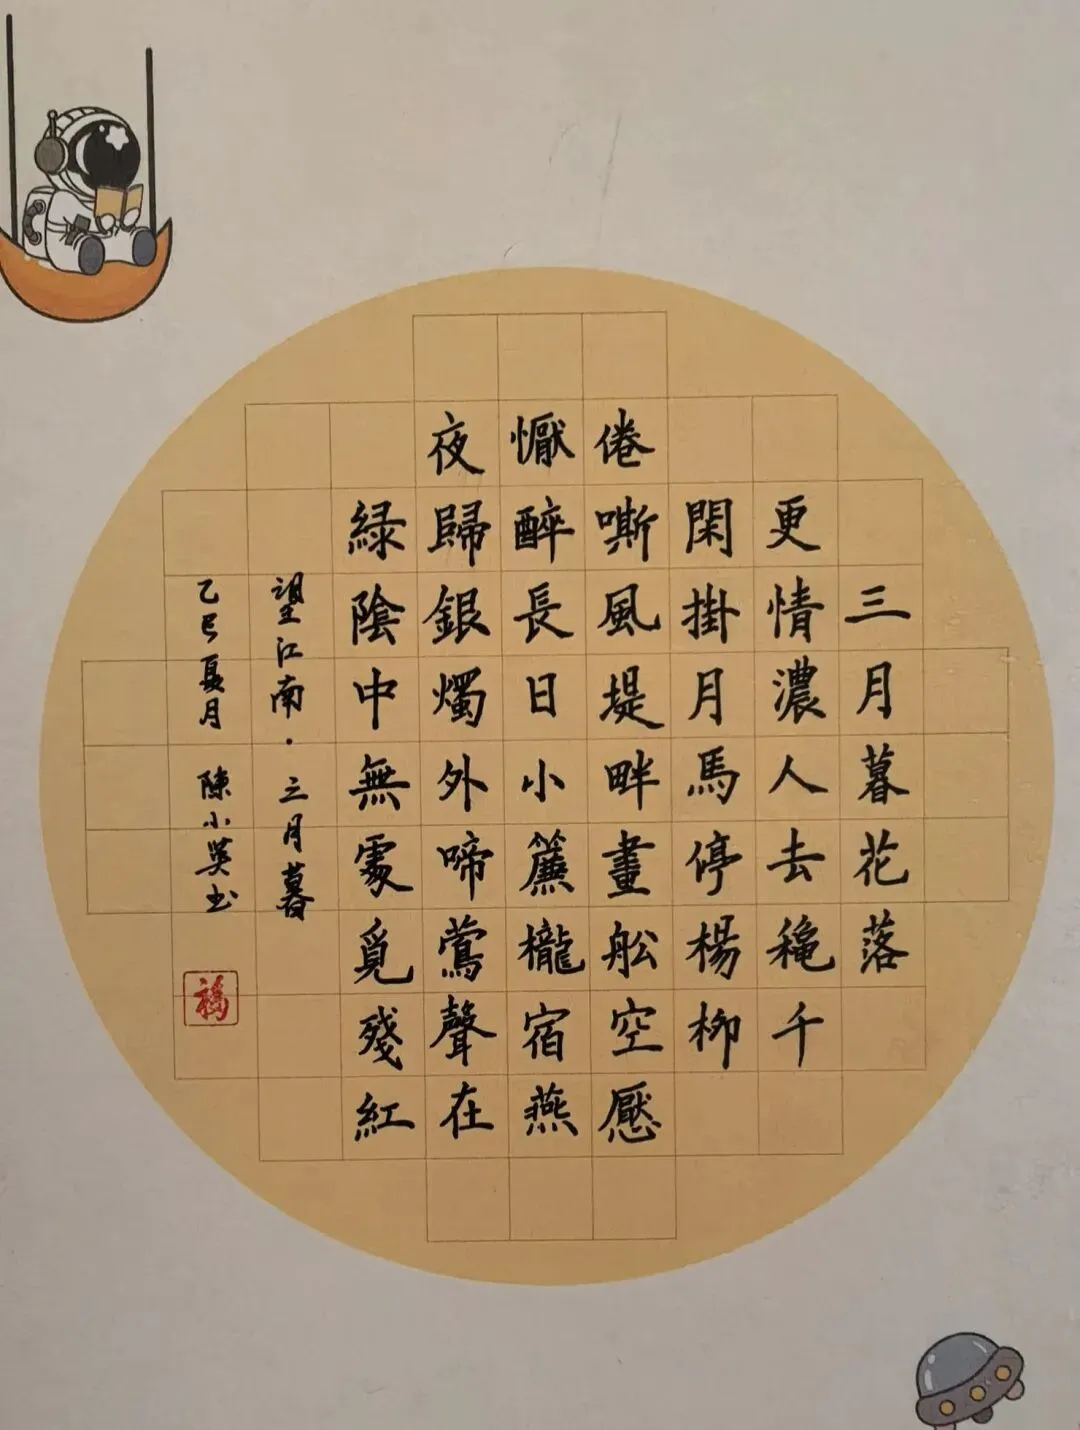 三月暮花落
更情濃人去穐千
閑掛月馬停楊柳
倦嘶風堤畔畫舩空懕
懨醉長日小簾櫳宿燕
夜歸銀燭外啼鶯聲在
綠陰中無處覓殘紅
望江南·三月暮
乙巳夏月 陳小英书
福